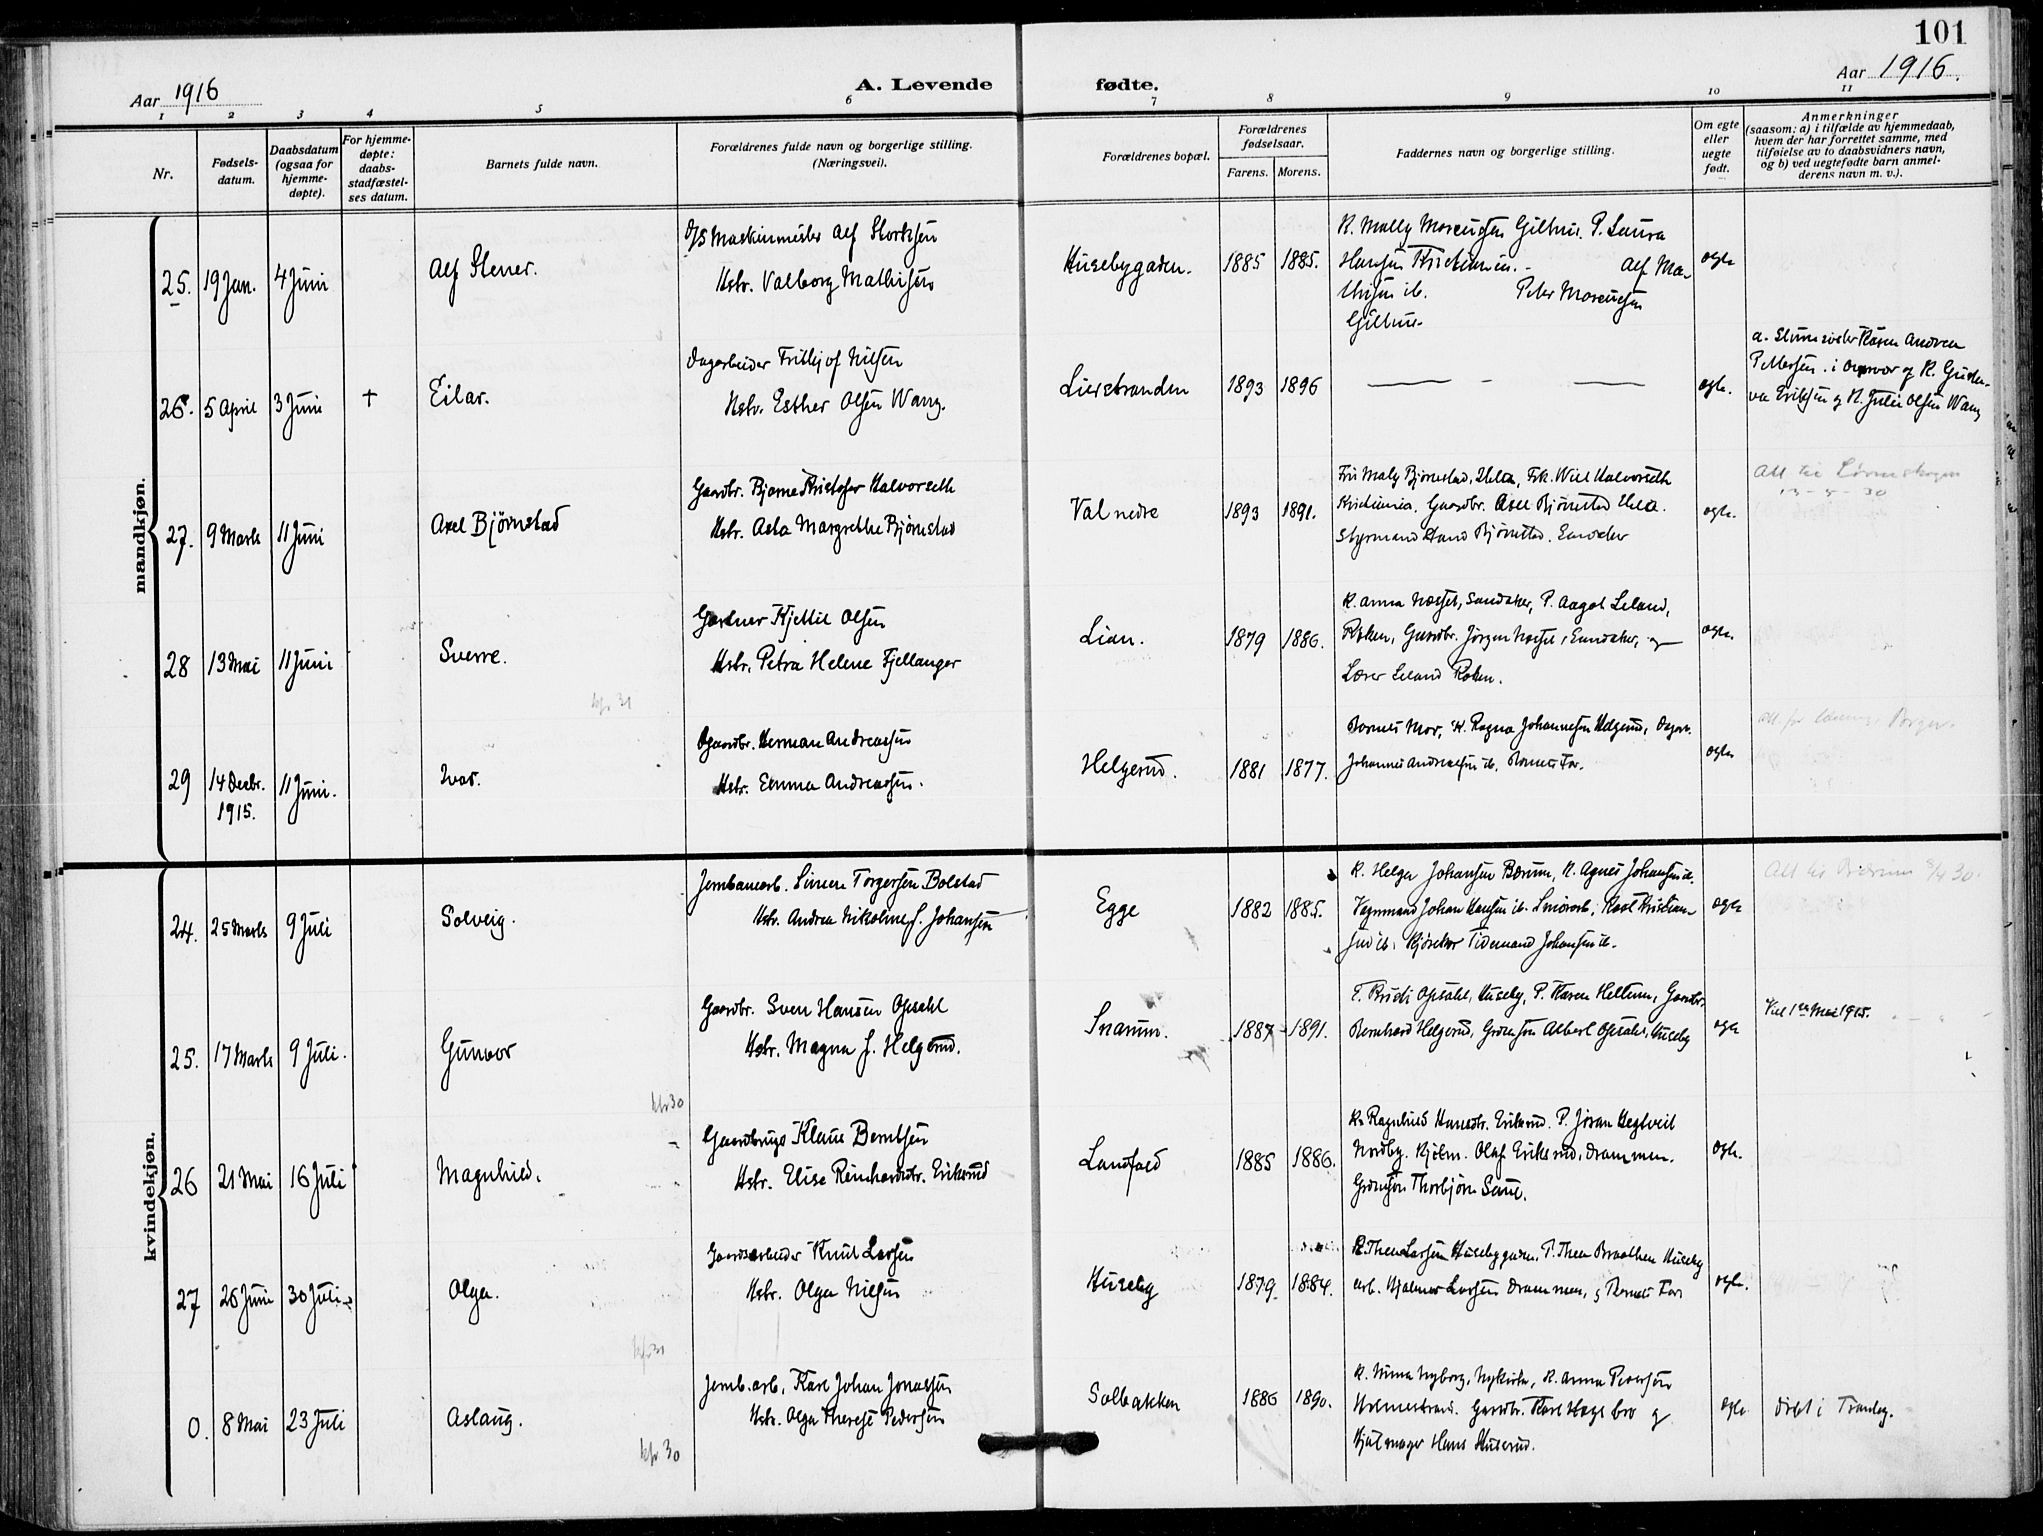 101
Aar 1916
A. Levende fødte.
Aar 1916.
1 2 3 4 5 6 7 8 9 10 11
Nr.
Fødsels-
datum.
Daabsdatum
(ogsaa for
hjemme-
døpte).
For hjemme-
døpte:
daabs-
stadfæstel-
ses datum.
Barnets fulde navn.
Forældrenes fulde navn og borgerlige stilling.
(Næringsvei).
Forældrenes bopæl.
Forældrenes
fødselsaar.
Farens. Morens.
Faddernes navn og borgerlige stilling.
Om egte
eller
uegte
født.
Anmerkninger
(saasom: a) i tilfælde av hjemmedaab,
hvem der har forrettet samme, med
tilføielse av to daabsvidners navn,
og b) ved uegtefødte barn anmel-
derens navn m. v.).
mandkjøn.
25. 19 Jan. 4 Juni
Alf Stener.
Maskinmester Alf Storksen
Hstr. Valborg Mathisen
Husebygaden. 1885 1885.
K. Mally Marcussen Gilhus. P. Laura
Hansen Kristiania. Alf Ma-
thisen ib. Peter Marcussen
Gilhus.
egte
26. 5 April 3 Juni +
Eilar.
Dagarbeider Frithjof Nilsen
Hstr. Esther Olsen Wang.
Lierstranden 1893 1896
— - —
egte.
Karen Andrea
Pettersen. i overvær af K. Gude-
va Eriksen og K. Julie Olsen Wang
27. 9 Marts 11 Juni
Axel Bjørnstad
Gaardbr. Bjarne Kristofer Halvorseth
Hstr. Asta Margrethe Bjørnstad
Val nedre 1893 1891.
Fru Maly Bjørnstad, Frk. Halvorseth
Kristiania. Gaardbr. Axel Bjørnstad
Styrmand Hans Bjørnstad.
egte.
Att til Lørenskogen
13-5-30
28 13 Mai 11 Juni
Sverre.
kfr 31
Gartner Kjettil Olsen
Hstr. Petra Helene Fjellanger
Lian. 1879 1886.
K. Anna Næsset, Sandaker, P. Aagot Leland,
Røken, Gaardbr. Jørgen Næsset, Sandaker, og
Lærer Leland Røken.
egte.
29 14 Decbr. 11 Juni.
1915.
Ivar.
Gaardbr. Herman Andreassen
Hstr. Emma Andreassen.
Helgerud. 1881 1877.
Barnets Mor, K. Ragna Johannessen Helgerud, Dagarb.
Johannes Andreassen ib. Barnets Far.
egte
kvindekjøn.
24. 25 Marts 9 Juli
Solveig.
Jernbanearb. Simen Torgersen Bolstad
Hstr. Andrea Nikoline f. Johansen
Egge 1882 1885.
K. Helga Johansen Bærum, K. Agnes Johansen ib.
Veynmand Johan Hansen ib. Karl Kristian-
sen ib. Tidemand Johansen ib.
egte
Att til Bærum 8/4 30.
25. 17 Marts 9 Juli.
Gunvor
kfr 30
Gaardbr. Sven Hansen Opsahl
Hstr. Magna f. Helgerud.
Snarum. 1887 1891.
Opsahl, Huseby, P. Karen Heltum, Gaardbr.
Bernhard Helgerud, Grdmssøn Albert Opsahl, Huseby
egte
Viel 1ste Mai 1915.
26 21 Mai 16 Juli
Magnhild.
Gaardbruger Klaus Berntsen
Hstr. Elise Reinhardtdtr. Eriksrud
Landfald 1885 1886.
K. Ragnhild Hansdtr. Eriksrud. P. Jøran Hegtveit
Nordby. Kjøbm. Olaf Eriksrud, Drammen.
Thorbjørn
egte.
27 26 Juni 30 Juli
Olga.
kfr 31
Gaardsarbeider Knut Larsen
Hstr. Olga Nilsen
Huseby 1879 1884.
K. Thea Larsen Husebygaden, P. Thea Braathen Huseby
arb. Hjalmar Larsen Drammen, og Barnets Far
egte.
0. 8 Mai 23 Juli
Aslaug.
kfr 30
Jernb.arb. Karl Johan Jonassen
Hstr. Olga Therese Pedersen
Solbakken 1886 1890.
K. Nina Nyborg, Nykirke, K. Anna Pedersen
Holmestrand. Gaardbr. Karl og
Hjulmager Hans Huserud.
egte
døbt i Tranby.